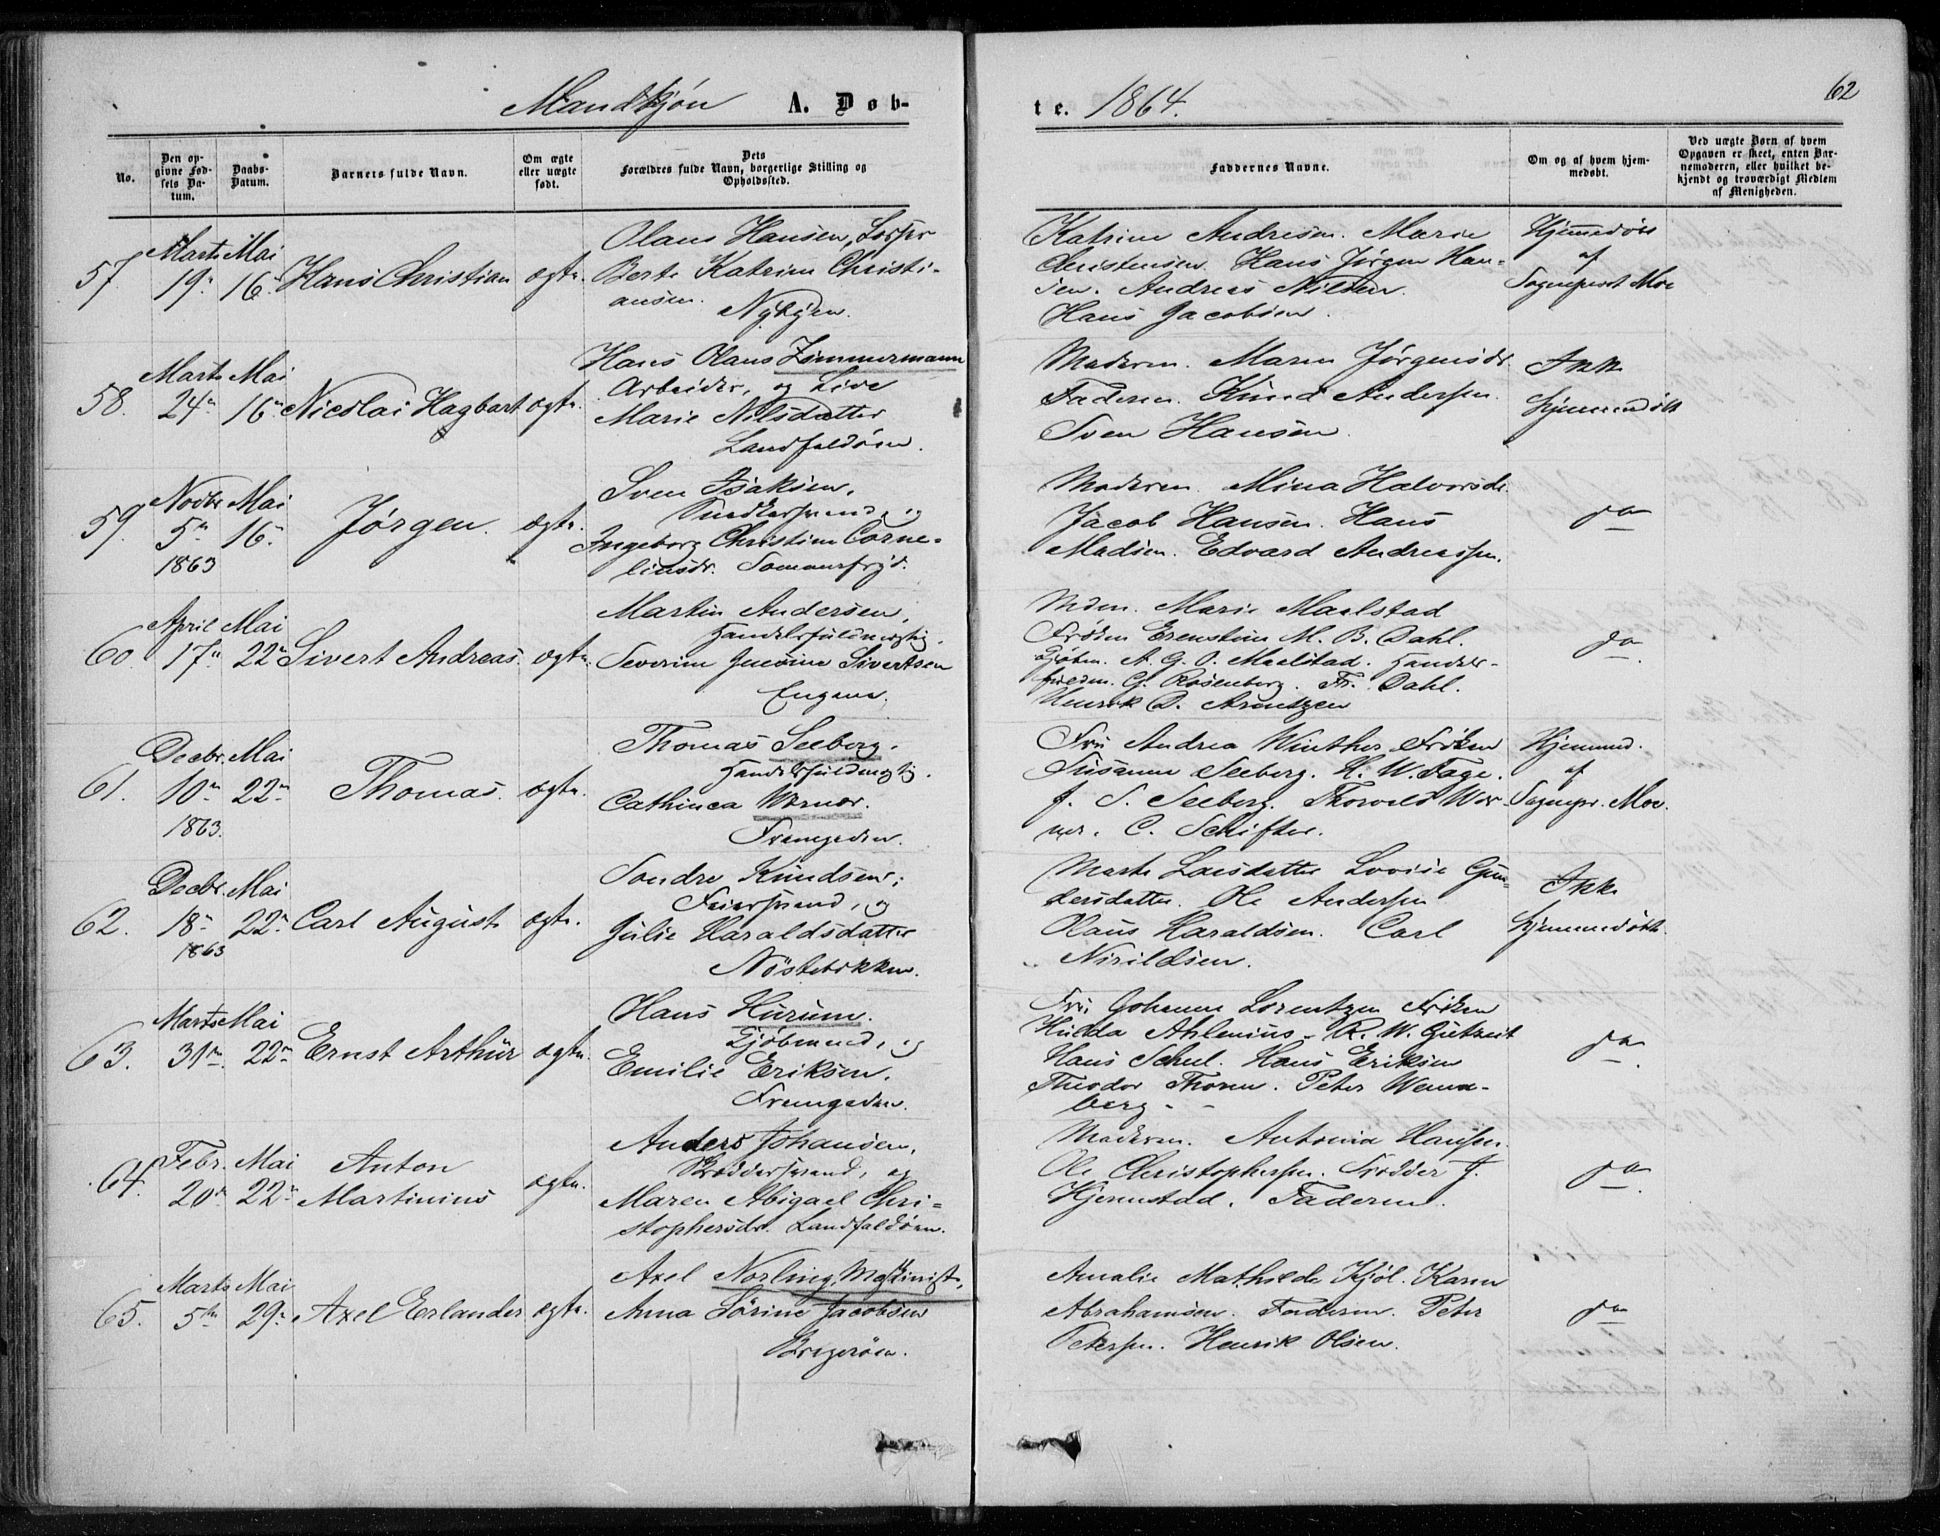 Mandkjøn A. Døb-
te. 1864.
62
No.
Den op-
givne Fød-
sels Da-
tum.
Daabs-
Datum.
Barnets fulde Navn.
Om ægte
eller uægte
født.
Dets
Forældres fulde Navn, borgerlige Stilling og
Opholdssted.
Faddernes Navne.
Om og af hvem hjem-
medøbt.
Ved uægte Børn af hvem
Opgaven er skeet, enten Bar-
nemoderen, eller hvilket be-
kjendt og troværdigt Medlem
af Menigheden.
57. Marts 19. Mai 16. Hans Christian ægte.
Olaus Hansen,
Berte Katrine Christi-
ansen.
Nybyen.
Katrine Andresen. Marie
Christensen. Hans Jørgen Han-
sen. Andreas Nilsen.
Hans Jacobsen.
Hjemmedøbt
af
Sognepræst Moe
58. Marts 24n Mai 16n Nicolai Hagbart ægte.
Hans Olaus Zimmermann
Arbeider, og Live
Marie Nilsdatter
Landfaldøen.
Moderen. Maren Jørgensdr.
Faderen. Knud Andersen.
Sven Hansen.
Ikke
hjemmedøbt
59. Novbr 5n 1863 Mai 16n Jørgen. ægte.
Sven Isaksen,
Snedkersvend, og
Ingeborg Christine Corne-
liusdr.
Moderen. Mina Halvorsdr.
Jacob Hansen. Hans
Madsen. Edvard Andreassen.
do
60. April 17n Mai 22n Sivert Andreas. ægte.
Martin Andersen,
Handelsfuldmægtig.
Severine Sivertsen
Engene.
Mdm. Marie Maalstad
Frøken Ernstine M. B. Dahl.
Kjøbm. A. G. O. Maalstad. Handels-
fuldm. G. Rosenberg. Fr. Dahl.
Henrik D. Arentzen
do
61. Decbr. 10n 1863. Mai 22n Thomas. ægte.
Thomas Seeberg.
Handelsfuldmægtig.
Cathinca Werner.
Tremgaden.
Fru Andrea Winther. Frøken
Susanne Seeberg. H. W. Fage.
J. S. Seeberg. Thorvald Wer-
ner. C. Schifter.
Hjemmed.
af
Sognepr. Moe.
62. Decbr. 18n 1863 Mai 22n Carl August ægte.
Sondre Knudsen,
Feiersvend, og
Julie Haraldsdatter
Nöstebakken.
Marte Larsdatter Lovise Gun-
dersdatter. Ole Andersen
Olaus Haraldsen. Carl
Nirildsen.
Ikke
hjemmedøbt.
63. Marts 31n Mai 22n Ernst Arthur ægte.
Hans Hurum.
Kjøbmand, og
Emilie Eriksen.
Tremgaden.
Fru Johanne Lorentzen Frøken
Hulda Ahlenius. R. W. Gutzeit
Hans Schul. Hans Eriksen
Theodor Thoren. Peter Wenne-
berg.
do
64. Febr. 20n Mai 22n Anton
Martinius ægte.
Anders Johansen,
Skræddersvend, og
Maren Abigael Chri-
stophersdr. Landfaldøen.
Moderen. Antonia Hansen.
Ole Christophersen. Skrædder J.
Hjermstad. Faderen.
do
65. Marts 5te Mai 29n Axel Erlander ægte.
Axel Norling, Maskinist,
Anna Sørine Jacobsen
Bragerøen.
Amalie Mathilde Kjøl. Karen
Abrahamsen. Faderen. Peter
Petersen. Henrik Olsen.
do